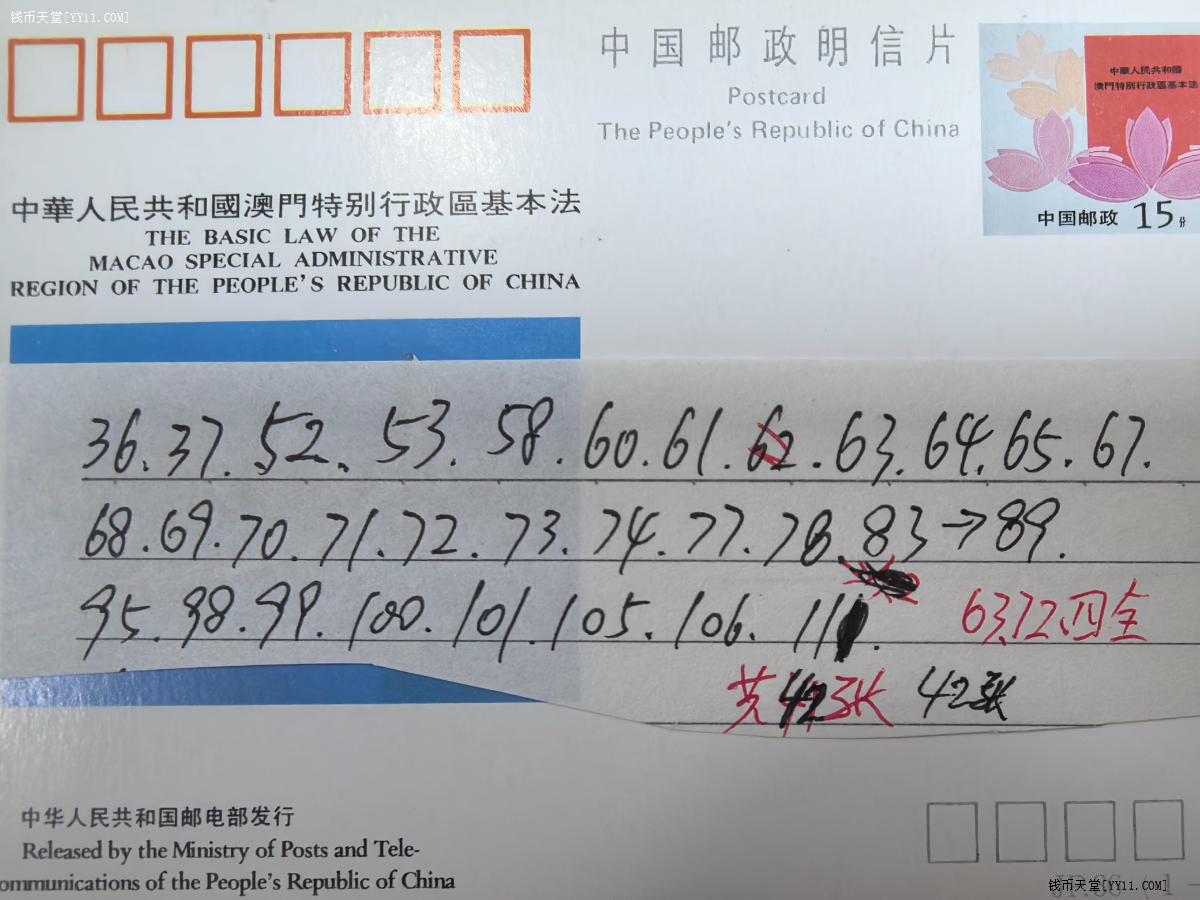 钱币天堂[YY11.COM]
中国邮政明信片
Postcard
The People's Republic of China
中華人民共和國
澳門特别行政區基本法
中国邮政 15分
中華人民共和國澳門特别行政區基本法
THE BASIC LAW OF THE
MACAO SPECIAL ADMINISTRATIVE
REGION OF THE PEOPLE'S REPUBLIC OF CHINA
36.37.52、53.58.60.61.62.63.64.65.67.
68.69.70.71.72.73.74.77.78.83→89.
95.98.99.100.101.105.106.11
63.72、四全
共42张 42张
中华人民共和国邮电部发行
Released by the Ministry of Posts and Tele-
ommunications of the People's Republic of China
钱币天堂[YY11.COM]